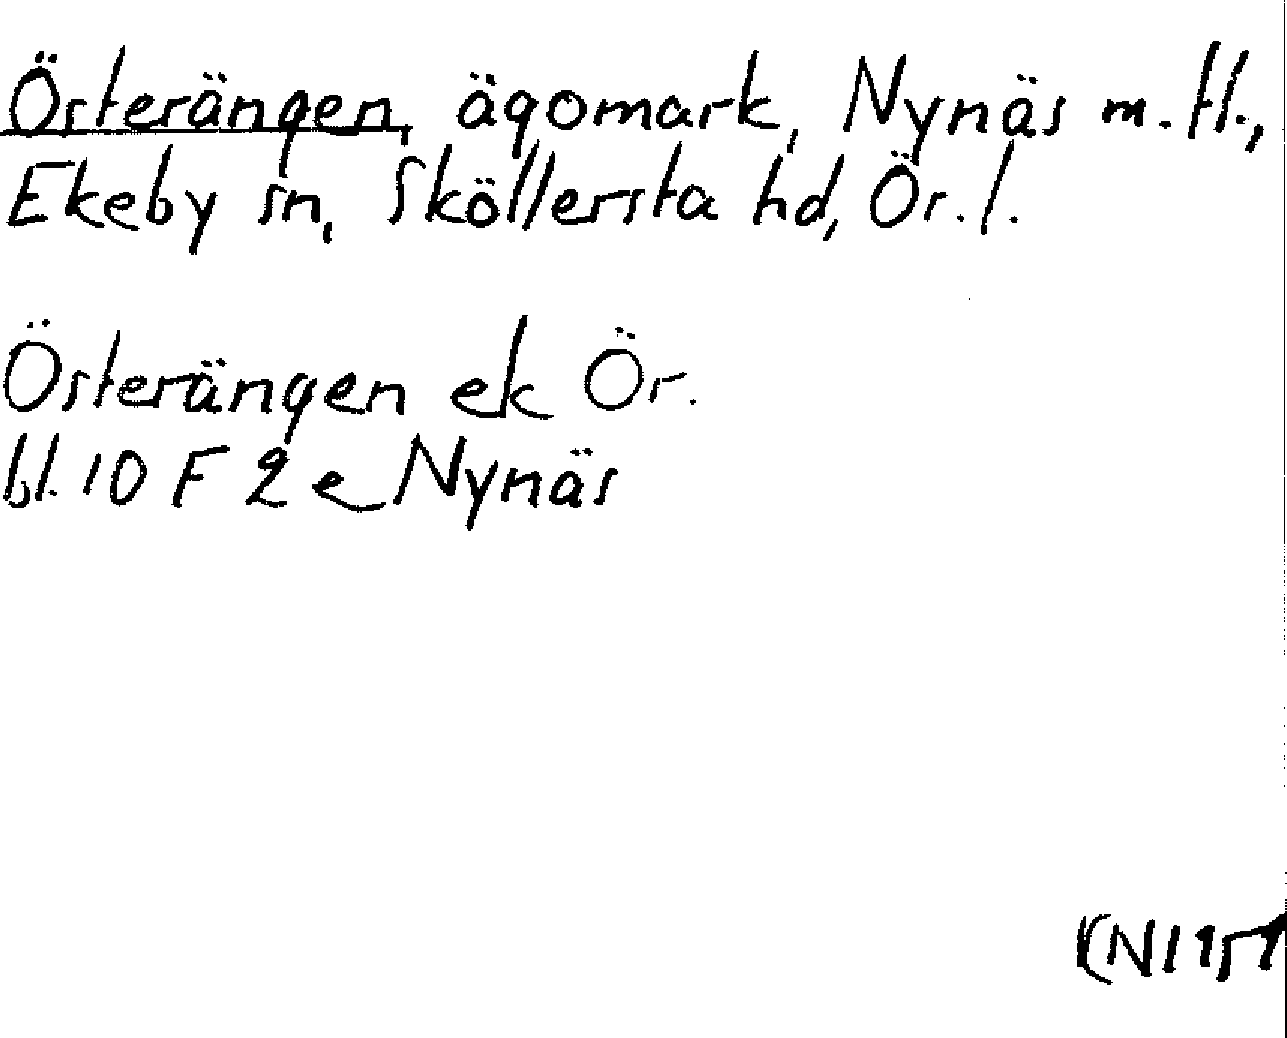 Österängen, ägomark, Nynäs m. fl.,
Ekeby sn, Sköllersta hd, Ör. l.
Österängen ek Ör.
bl. 10 F 2 e Nynäs